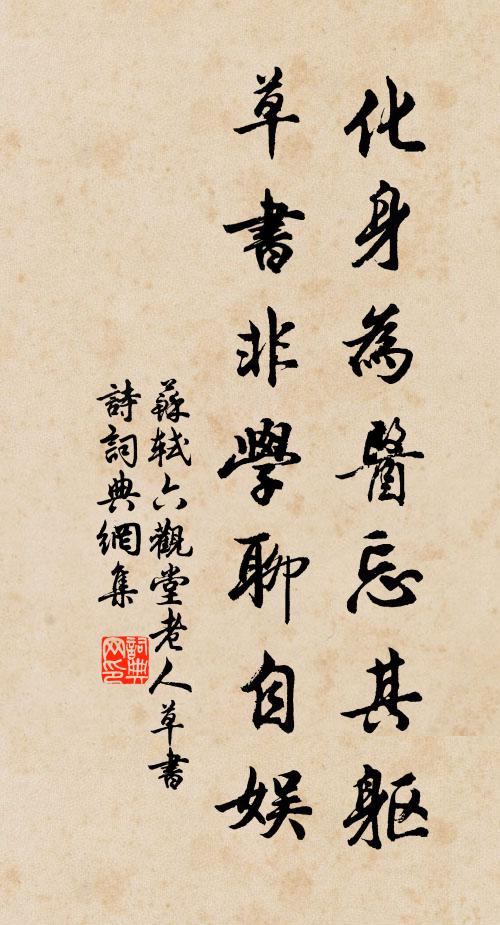 化身為醫忘其軀
草書非學聊自娛
蘇軾六觀堂老人草書
詩詞典網集
詞典网印